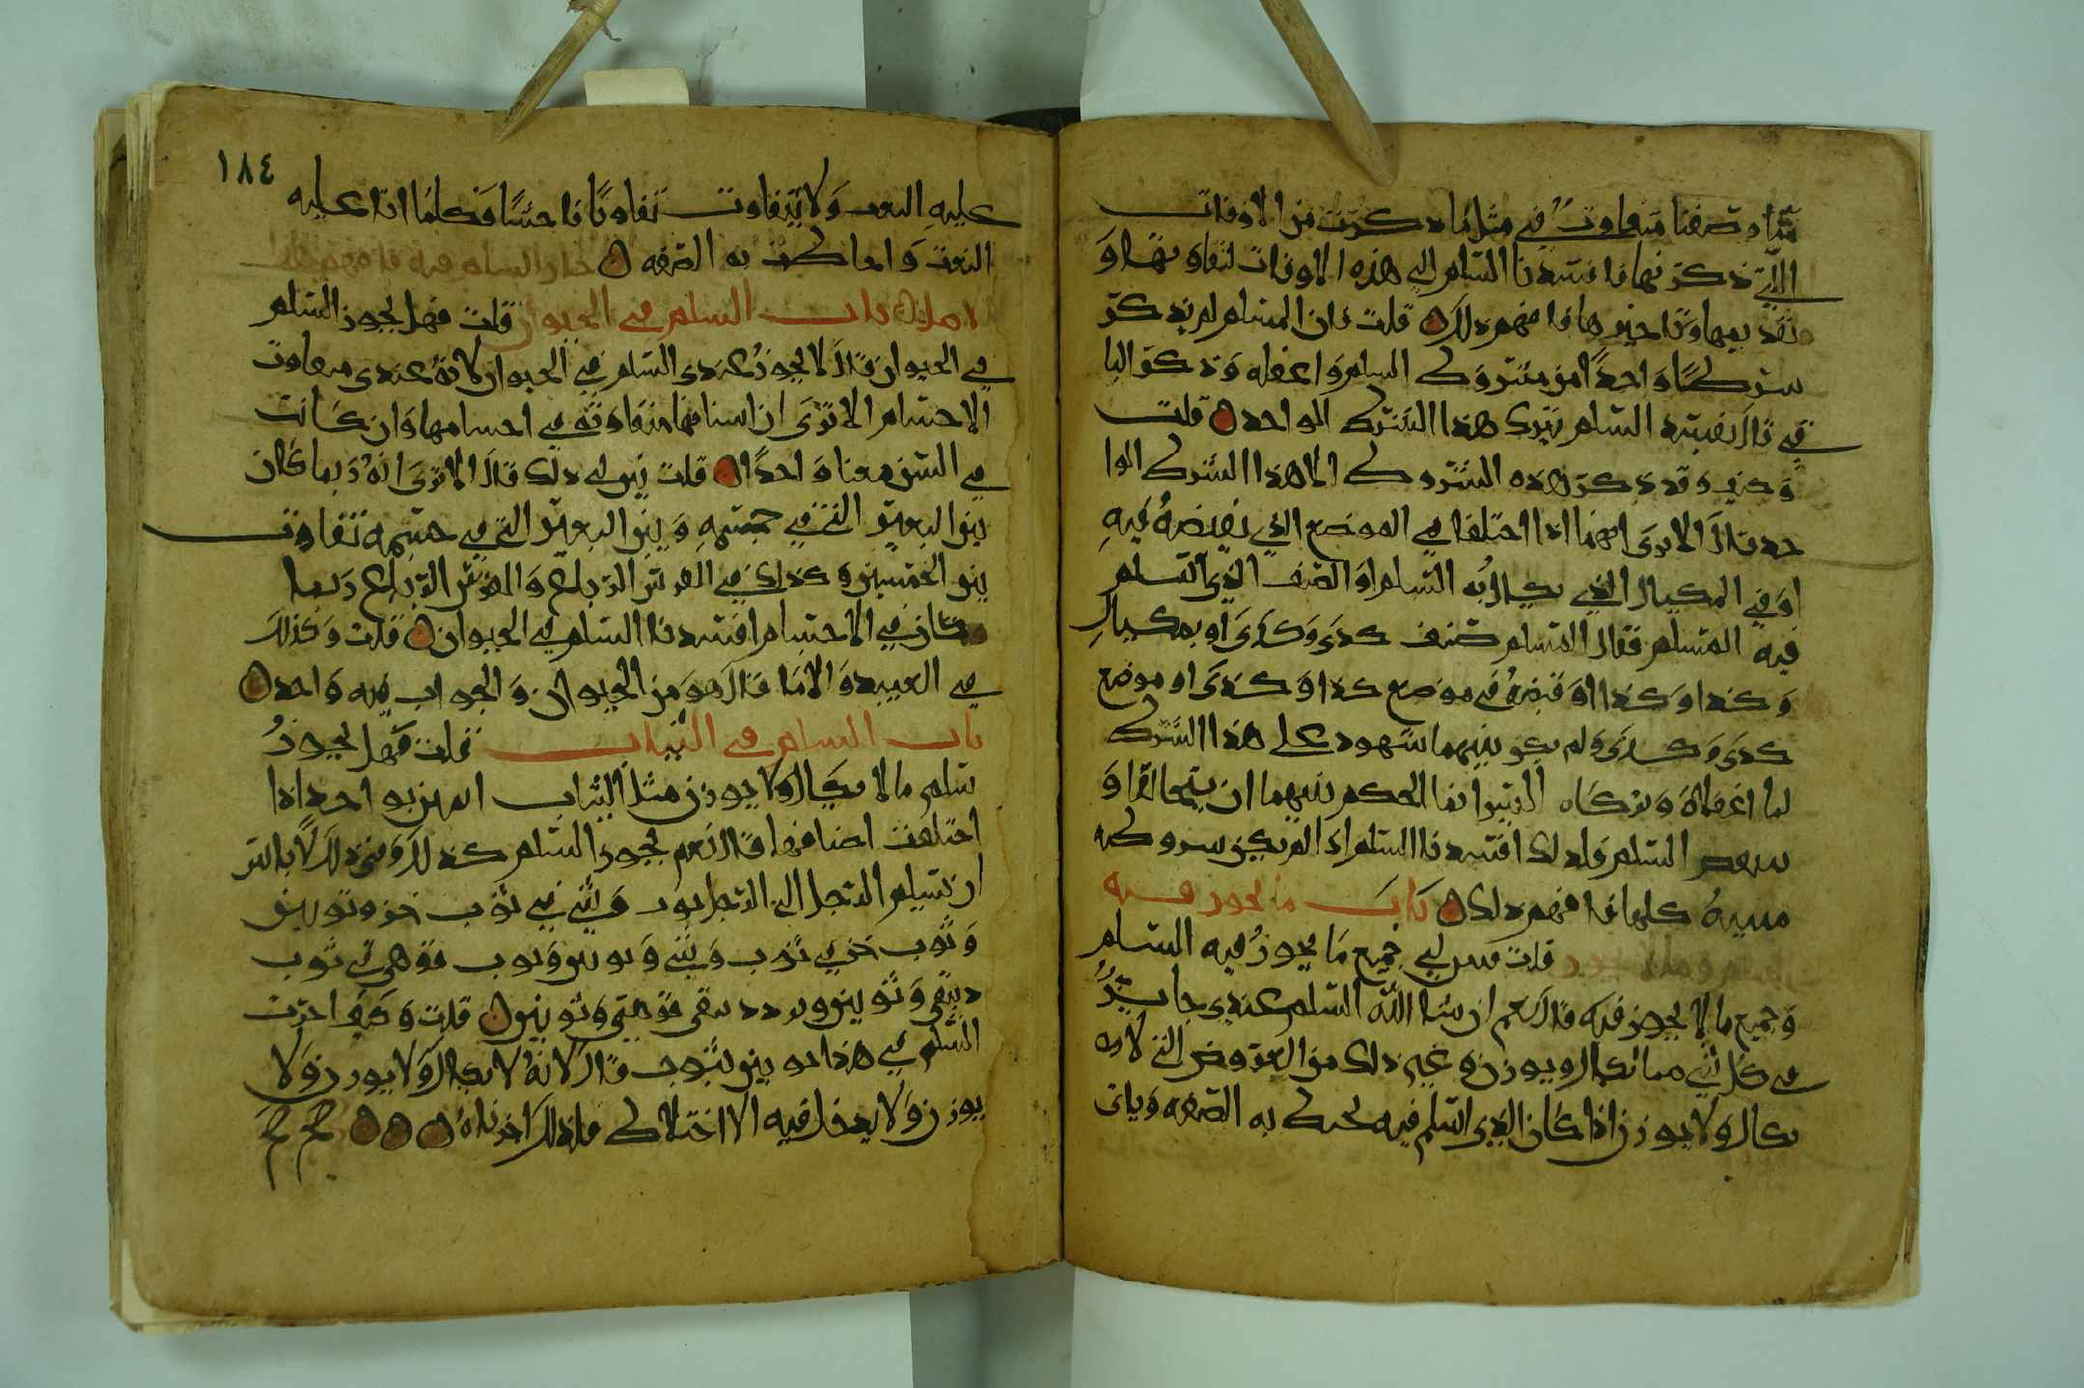 شاء وصفنا متفاوت في مثل ما ذكرت من الاوقات
التي ذكرنها فافسدنا السلم الي هذه الاوقات لتفاوتها و
تاخيرها فافهم ذلك قلت فان المسلم لم يذكر
شرطا واحدا من شروط السلم واغفله وذكر البا
قي قال يفسد السلم بترك هذا الشرط الواحد قلت
وكيف وقد ذكر هذه الشروط الا هذا الشرط الوا
حد قال الا ترى انهما اذا اختلفا في الموضع الذي يقبضه فيه
او في المكيال الذي يكال به السلم او الصنف الذي اسلم
فيه المسلم فقال المسلم صنف كذى وكذى او بمكيال
كذا وكذا او قبضه في موضع كذا وكذى او موضع
كذى وكذى ولم يكن بينهما شهود على هذا الشرط
لما اغفلاه وتركاه اليس انما الحكم بينهما ان يتحالفا و
ينتقض السلم ولذلك افسدنا السلم اذا لم يكن شروطه
مبينة كلها فافهم ذلك باب ما يجوز فيه
السلم وما لا يجوز قلت فسر لي جميع ما يجوز فيه السلم
وجميع ما لا يجوز فيه قال نعم ان شاء الله السلم عندي جايز
في كل شي مما يكال ويوزن وغير ذلك من العروض التي لا
يكال ولا يوزن اذا كان الذي اسلم فيه يحاط به الصفه وياتي
١٨٤
عليه النعت ولا يتفاوت تفاوتا فاحشا وكلما اتا عليه
النعت واحاطت به الصفه جاز السلم فيه فافهم
باب السلم في الحيوان قلت فهل يجوز السلم
في الحيوان قال لا يجوز عندي السلم في الحيوان لانه عندي متفاوت
الاجسام الا ترى ان اسنانها متفاوته في اجسامها وان كانت
في السن معنا واحدا قلت بين لي ذلك قال الا ترى انه ربما كان
بين البعير الثني في جسمه وبين البعير الثني في جسمه تفاوت
بين الجسمين وكذلك في الفرس الرباع والفرس الرباع ربما
كان في الاجسام افسدنا السلم في الحيوان قلت وكذلك
في العبيد والاما قال هو من الحيوان والجواب فيه واحد
باب السلم في الثياب قلت فهل يجوز
سلم ما لا يكال ولا يوزن مثل الثياب
اختلفت اصنافها قال نعم يجوز السلم كذلك وفي ذلك لا باس
ان يسلم الرجل الى الرجل ثوب وشي في ثوب خز وثوبين
وثوب خز في ثوب وشي وثوبين وثوب قوهي في ثوب
دبيقي وثوبين وبرد دبيقي قوهي وثوبين قلت وكيف اجزت
السلم في هذا ثوبين بثوب قال لانه لا يكال ولا يوزن ولا
يوزن ولا يدخل فيه الاختلاط فلذلك اجزناه